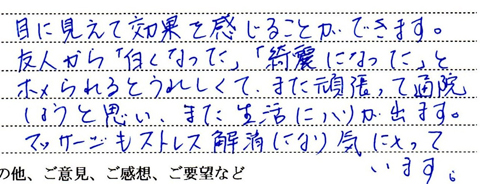 目に見えて効果を感じることができます。
友人から「白くなった」「綺麗になった」と
ホメられるとうれしくて、また頑張って通院
しようと思い、また生活にハリが出ます。
マッサージもストレス解消になり気に入って
います。
の他、ご意見、ご感想、ご要望など